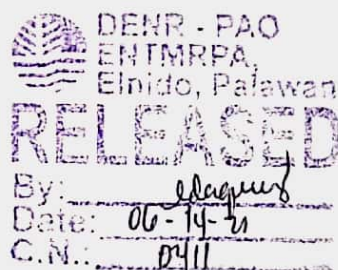 DENR - PAO
ENTMRPA,
Elnido, Palawan
RELEASED
By:
Date: 06-14-21
C.N.: 0411